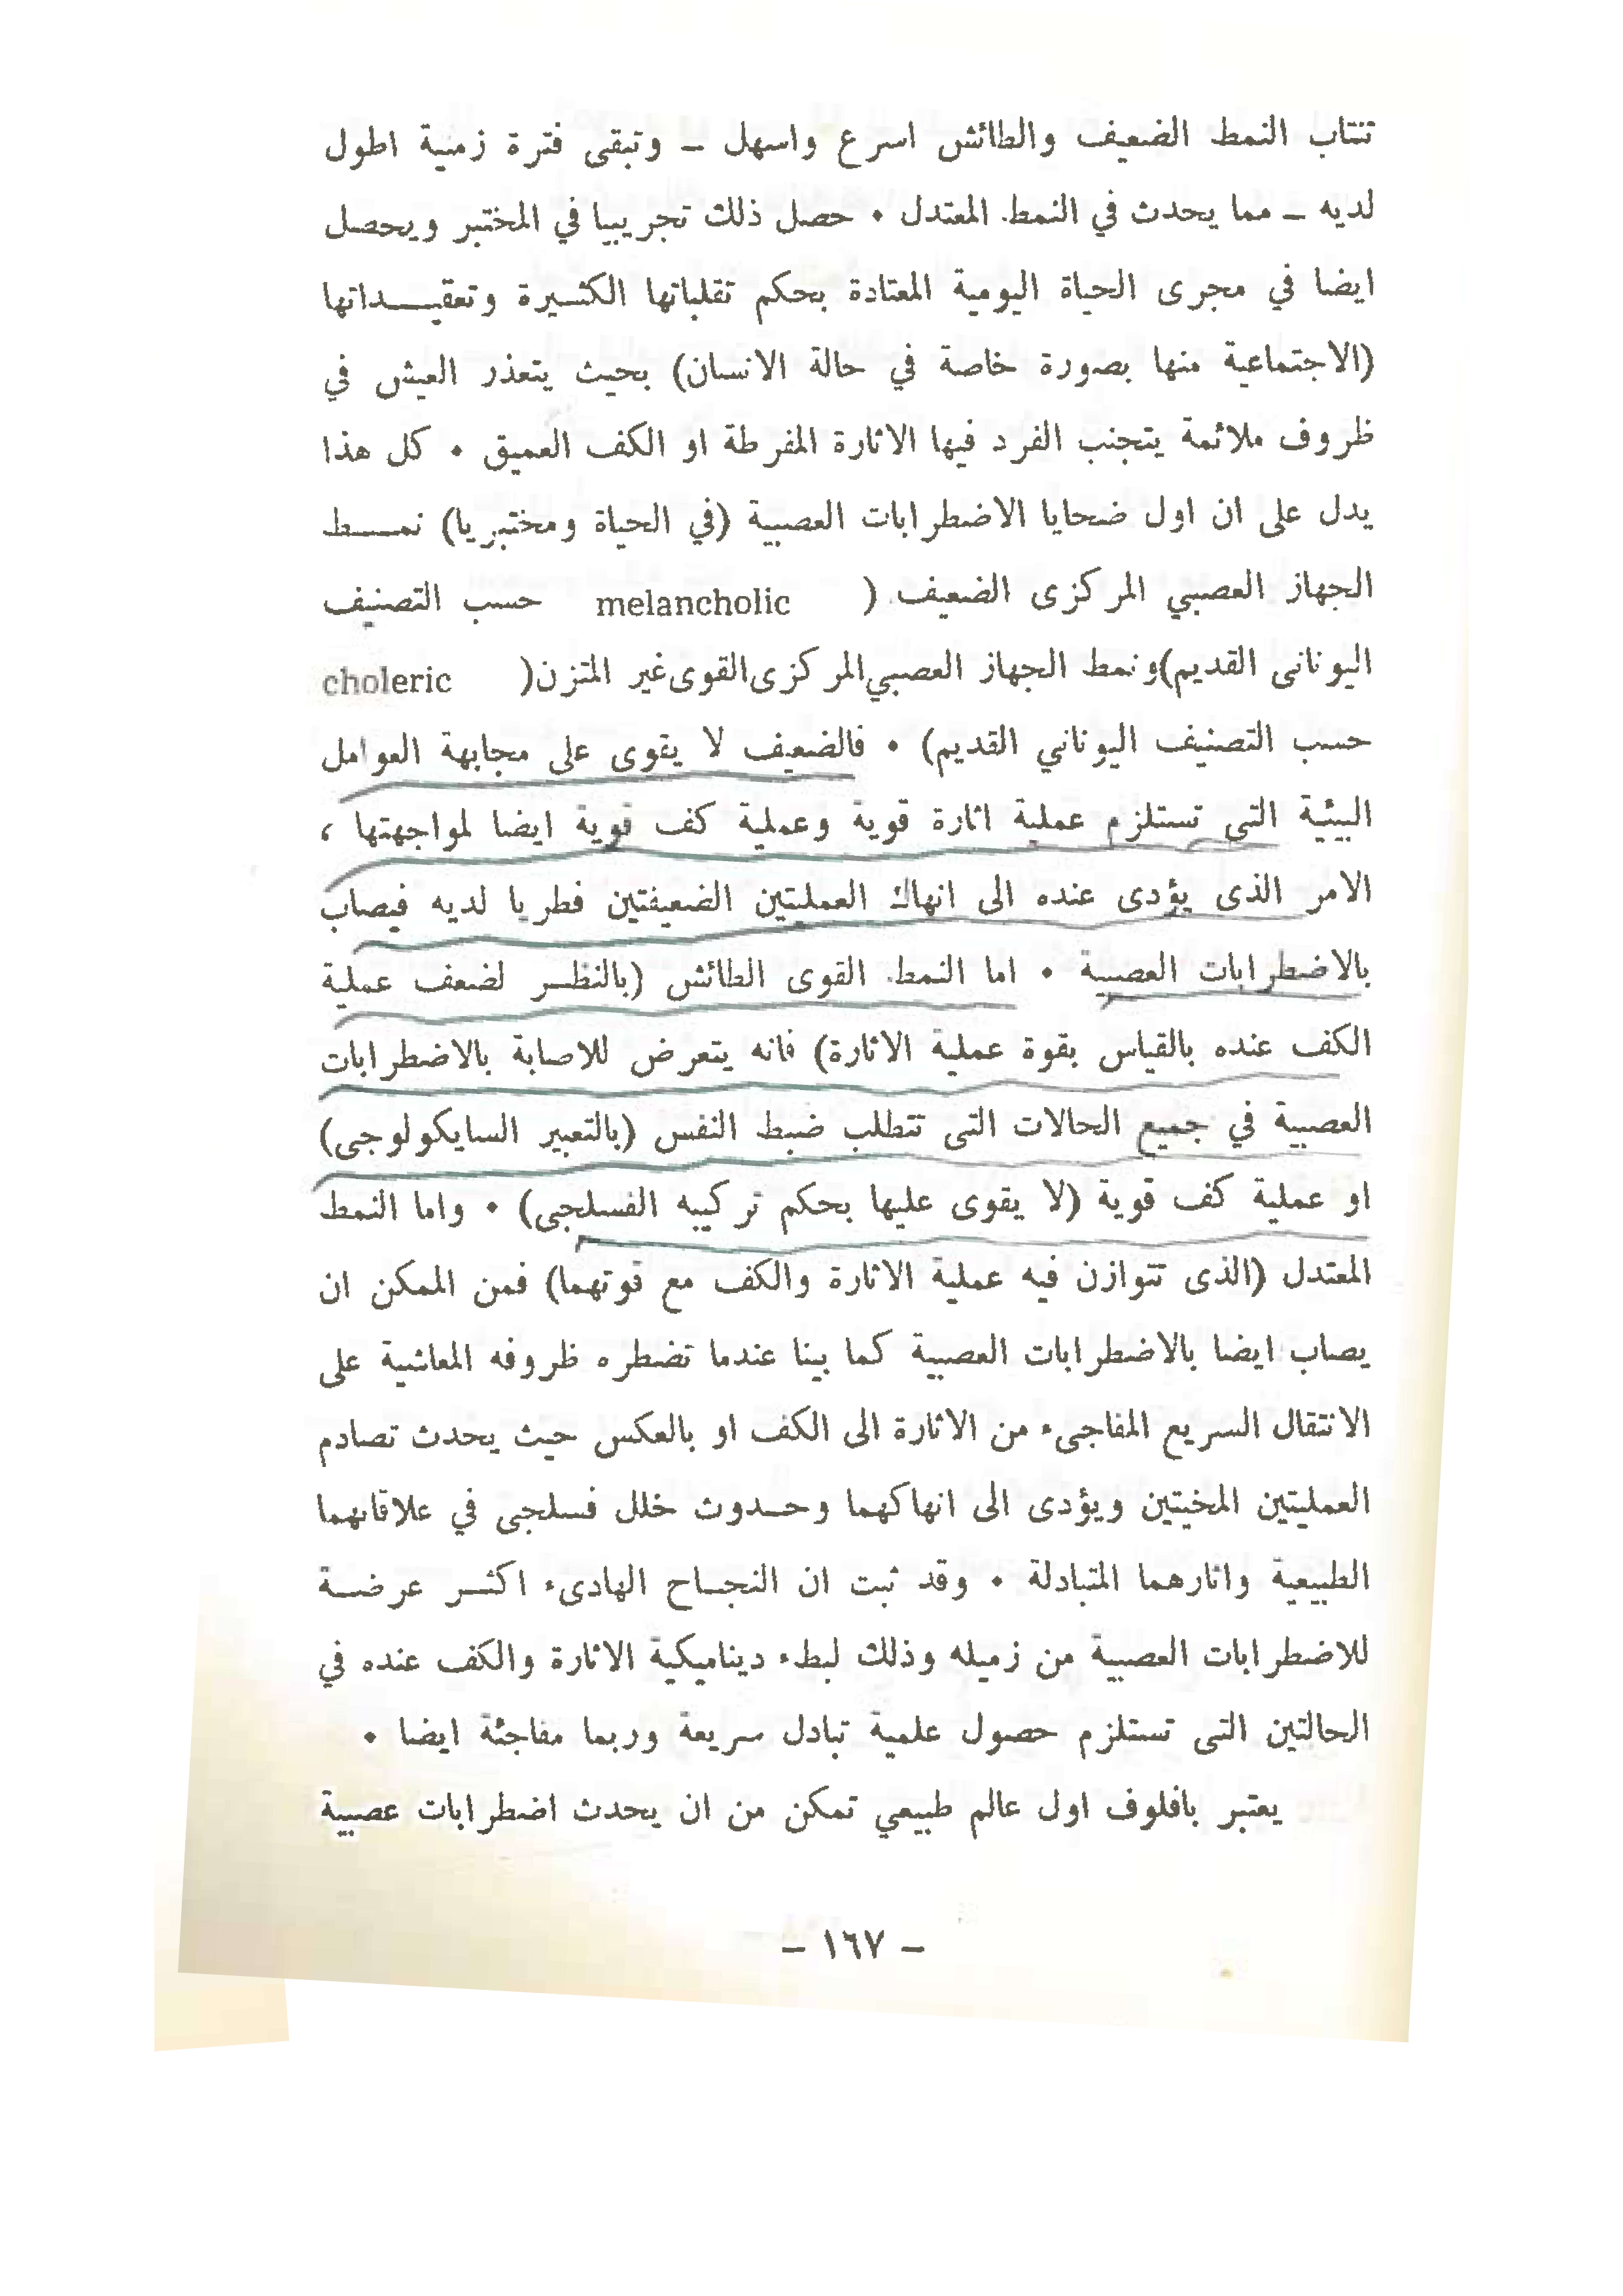 تنتاب النمط الضعيف والطائش اسرع واسهل – وتبقى فترة زمنية اطول
لديه – مما يحدث في النمط المعتدل . حصل ذلك تجريبيا في المختبر ويحصل
ايضا في مجرى الحياة اليومية المعتادة بحكم تقلباتها الكثيرة وتعقيداتها
(الاجتماعية منها بصورة خاصة في حالة الانسان) بحيث يتعذر العيش في
ظروف ملائمة يتجنب الفرد فيها الاثارة المفرطة او الكف العميق . كل هذا
يدل على ان اول ضحايا الاضطرابات العصبية (في الحياة ومختبريا) نمط
الجهاز العصبي المركزى الضعيف ( melancholic حسب التصنيف
اليونانى القديم) ونمط الجهاز العصبي المركزى القوى غير المتزن ( choleric
حسب التصنيف اليوناني القديم) . فالضعيف لا يقوى على مجابهة العوامل
البيئية التى تستلزم عملية اثارة قوية وعملية كف قوية ايضا لمواجهتها ،
الامر الذى يؤدى عنده الى انهاك العمليتين الضعيفتين فطريا لديه فيصاب
بالاضطرابات العصبية . اما النمط القوى الطائش (بالنظر لضعف عملية
الكف عنده بالقياس بقوة عملية الاثارة) فانه يتعرض للاصابة بالاضطرابات
العصبية في جميع الحالات التى تتطلب ضبط النفس (بالتعبير السايكولوجى)
او عملية كف قوية (لا يقوى عليها بحكم تركيبه الفسلجى) . واما النمط
المعتدل (الذى تتوازن فيه عملية الاثارة والكف مع قوتهما) فمن الممكن ان
يصاب ايضا بالاضطرابات العصبية كما بينا عندما تضطره ظروفه المعاشية على
الانتقال السريع المفاجىء من الاثارة الى الكف او بالعكس حيث يحدث تصادم
العمليتين المخيتين ويؤدى الى انهاكهما وحدوث خلل فسلجى في علاقاتهما
الطبيعية واثارهما المتبادلة . وقد ثبت ان النجاح الهادىء اكثر عرضة
للاضطرابات العصبية من زميله وذلك لبطء ديناميكية الاثارة والكف عنده في
الحالتين التى تستلزم حصول علمية تبادل سريعة وربما مفاجئة ايضا .
يعتبر بافلوف اول عالم طبيعي تمكن من ان يحدث اضطرابات عصبية
– ١٦٧ –